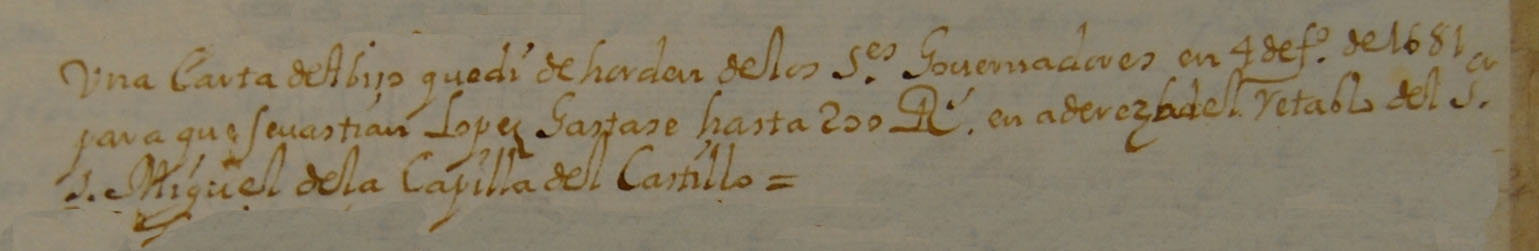 Una Carta de Abiso que di de horden de los S.es Gouernadores en 4 de f.o de 1681
para que seuastian Lopez Gastase hasta 200 R.s en aderezar el retablo del S.or
S. Miguel de la Capilla del Castillo =